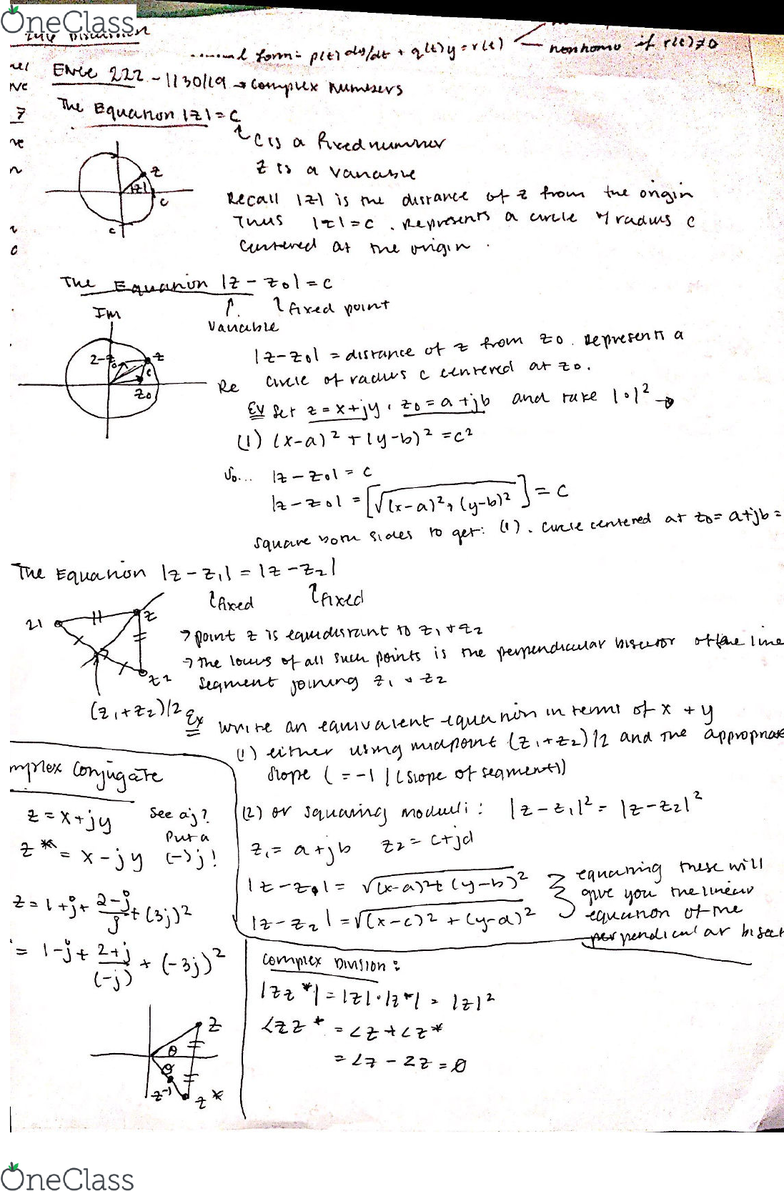 OneClass
Discussion
form: p(t) dy/dt + q(t)y = r(t)
nonhomo if r(t)≠0
ENEE 222 - 1/30/19 → Complex Numbers
The Equation |z| = c
c is a fixed number
z is a variable
z
|z|
c
c
Recall |z| is the distance of z from the origin
Thus |z| = c. Represents a circle of radius c
centered at the origin.
The Equation |z - z0| = c
variable
fixed point
Im
z
z-z0
c
z0
Re
|z-z0| = distance of z from z0. Represents a
circle of radius c centered at z0.
Ex Set z = x+jy, z0 = a+jb and take |·|² →
(1) (x-a)² + (y-b)² = c²
So... |z-z0| = c
|z-z0| = [√(x-a)²+(y-b)²] = c
square both sides to get: (1). circle centered at z0 = a+jb =
The Equation |z-z1| = |z-z2|
fixed
fixed
z1
z
z2
(z1+z2)/2
→ point z is equidistant to z1 + z2
→ the locus of all such points is the perpendicular bisector of the line
segment joining z1 + z2
Ex write an equivalent equation in terms of x + y
(1) either using midpoint (z1+z2)/2 and the appropriate
slope (= -1 / (slope of segment))
(2) or squaring moduli: |z-z1|² = |z-z2|²
z1 = a+jb z2 = c+jd
|z-z1| = √(x-a)²+(y-b)²
|z-z2| = √(x-c)²+(y-d)²
equating these will
give you the linear
equation of the
perpendicular bisect
mplex Conjugate
z = x+jy
See a j?
Put a
(-)j!
z* = x-jy
z = 1+j+ (2-j)/j + (3j)²
= 1-j+ (2+j)/(-j) + (-3j)²
z
θ
θ
z⁻¹
z*
Complex Division:
|zz*| = |z|·|z*| = |z|²
∠zz* = ∠z+∠z*
= ∠z - ∠z = 0
OneClass